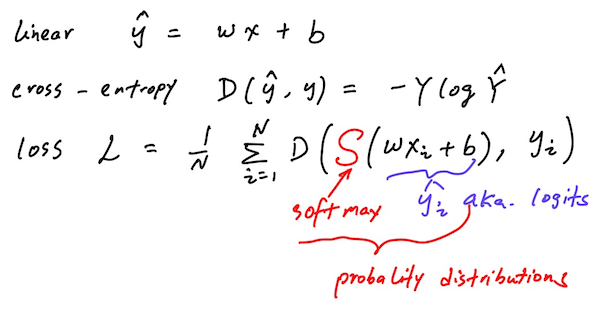 linear ŷ = wx + b
cross-entropy D(ŷ, y) = -Y log Ŷ
loss L = 1/N Σ_{i=1}^{N} D(S(wx_i + b), y_i)
softmax ŷ_i aka. logits
probality distributions